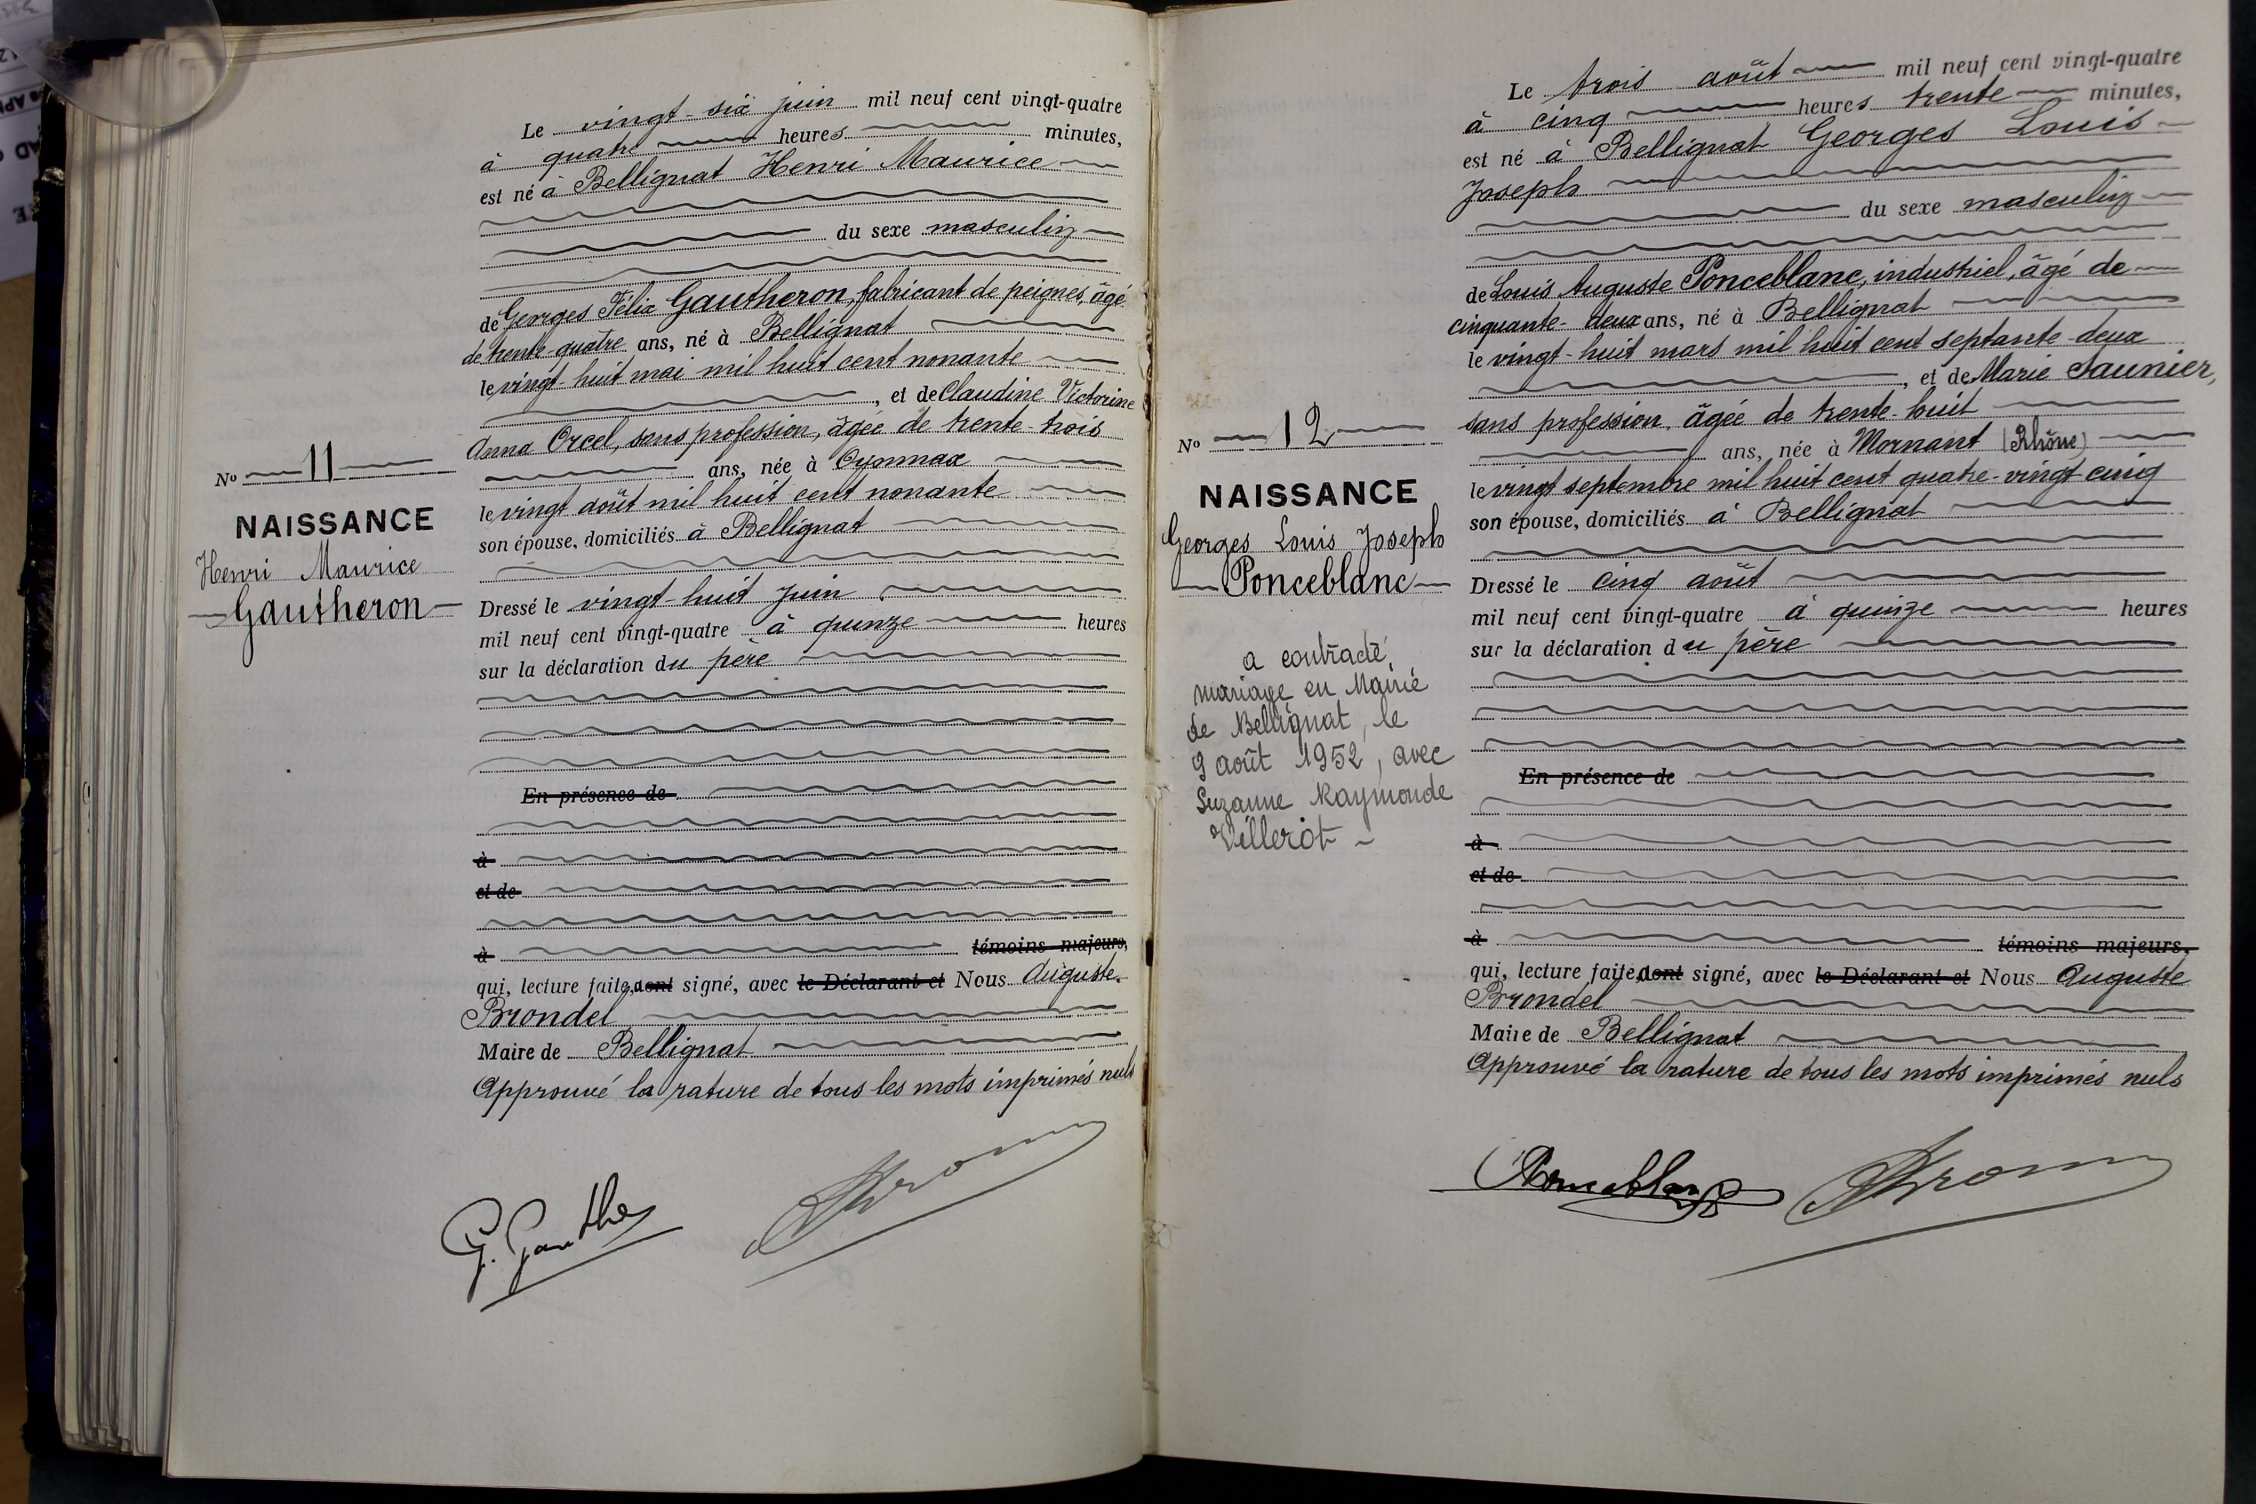 Le vingt-six juin mil neuf cent vingt-quatre
à quatre heures minutes,
est né à Bellignat Henri Maurice
du sexe masculin
de Georges Félix Gautheron, fabricant de peignes, âgé
de trente-quatre ans, né à Bellignat
le vingt-huit mai mil huit cent nonante
, et de Claudine Victorine
Anna Orcel, sans profession, âgée de trente-trois
ans, née à Oyonnax
le vingt août mil huit cent nonante
son épouse, domiciliés à Bellignat
Dressé le vingt-huit juin
mil neuf cent vingt-quatre à quinze heures
sur la déclaration du père
En présence de
à
et de
à témoins majeurs,
qui, lecture faite, a ont signé, avec le Déclarant et Nous Auguste
Brondel
Maire de Bellignat
Approuvé la rature de tous les mots imprimés nuls
G. Gauthe
No 11
NAISSANCE
Henri Maurice
Gautheron
Le trois août mil neuf cent vingt-quatre
à cinq heures trente minutes,
est né à Bellignat Georges Louis
Joseph
du sexe masculin
de Louis Auguste Ponceblanc, industriel, âgé de
cinquante-deux ans, né à Bellignat
le vingt-huit mars mil huit cent septante-deux
, et de Marie Saunier,
sans profession, âgée de trente-huit
ans, née à Mornant (Rhône)
le vingt septembre mil huit cent quatre-vingt-cinq
son épouse, domiciliés à Bellignat
Dressé le cinq août
mil neuf cent vingt-quatre à quinze heures
sur la déclaration du père
En présence de
à
et de
à témoins majeurs,
qui, lecture faite, a ont signé, avec le Déclarant et Nous Auguste
Brondel
Maire de Bellignat
Approuvé la rature de tous les mots imprimés nuls
Ponceblanc
No 12
NAISSANCE
Georges Louis Joseph
Ponceblanc
a contracté
mariage en Mairie
de Bellignat, le
9 août 1952, avec
Suzanne Raymonde
Villerot